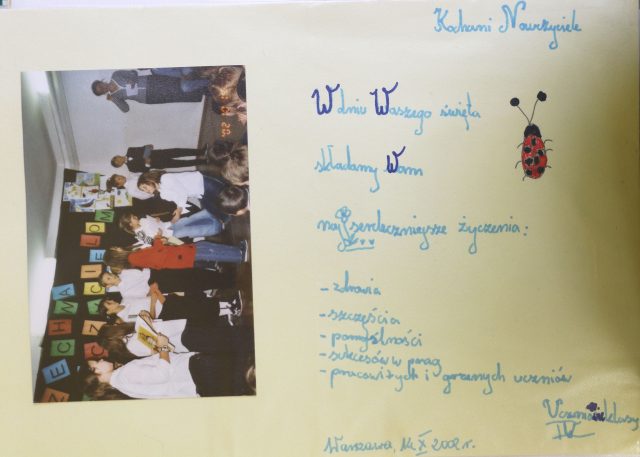 Kochani Nauczyciele
W dniu Waszego święta
składamy Wam
najserdeczniejsze życzenia:
- zdrowia
- szczęścia
- pomyślności
- sukcesów w pracy
- pracowitych i grzecznych uczniów
Uczniowie klasy
IV
Warszawa, 14 X 2002 r.